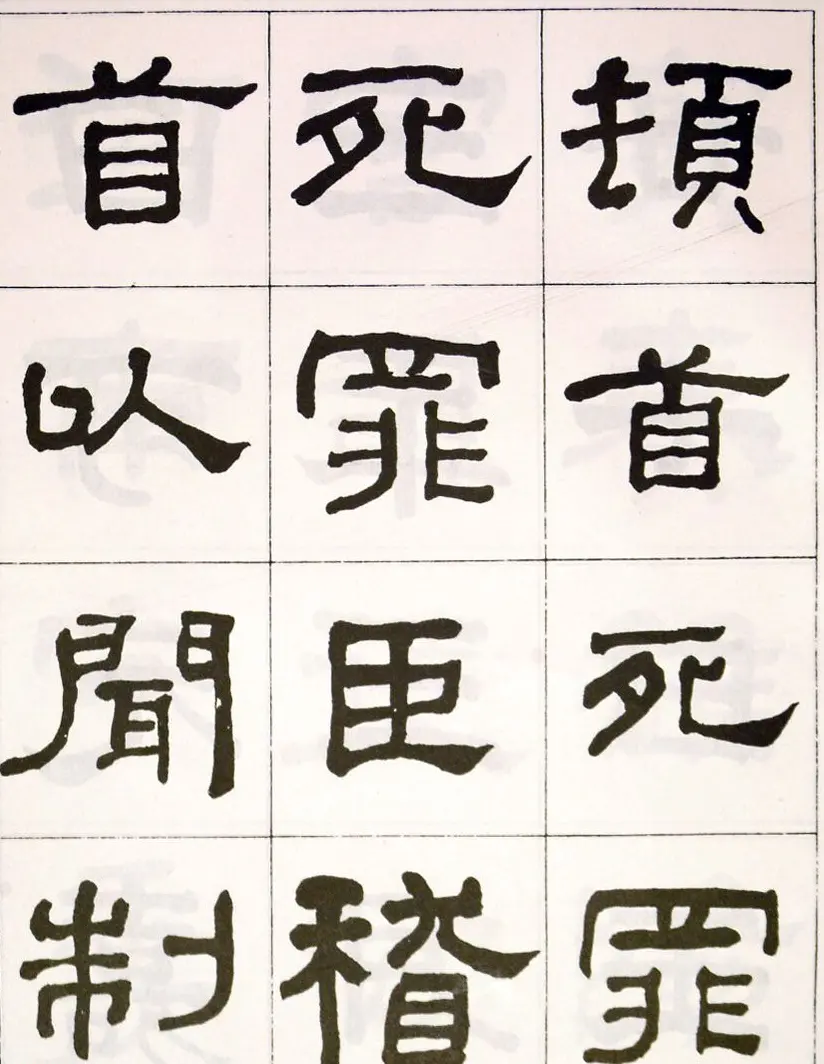 頓首死罪
死罪臣稽
首以聞制